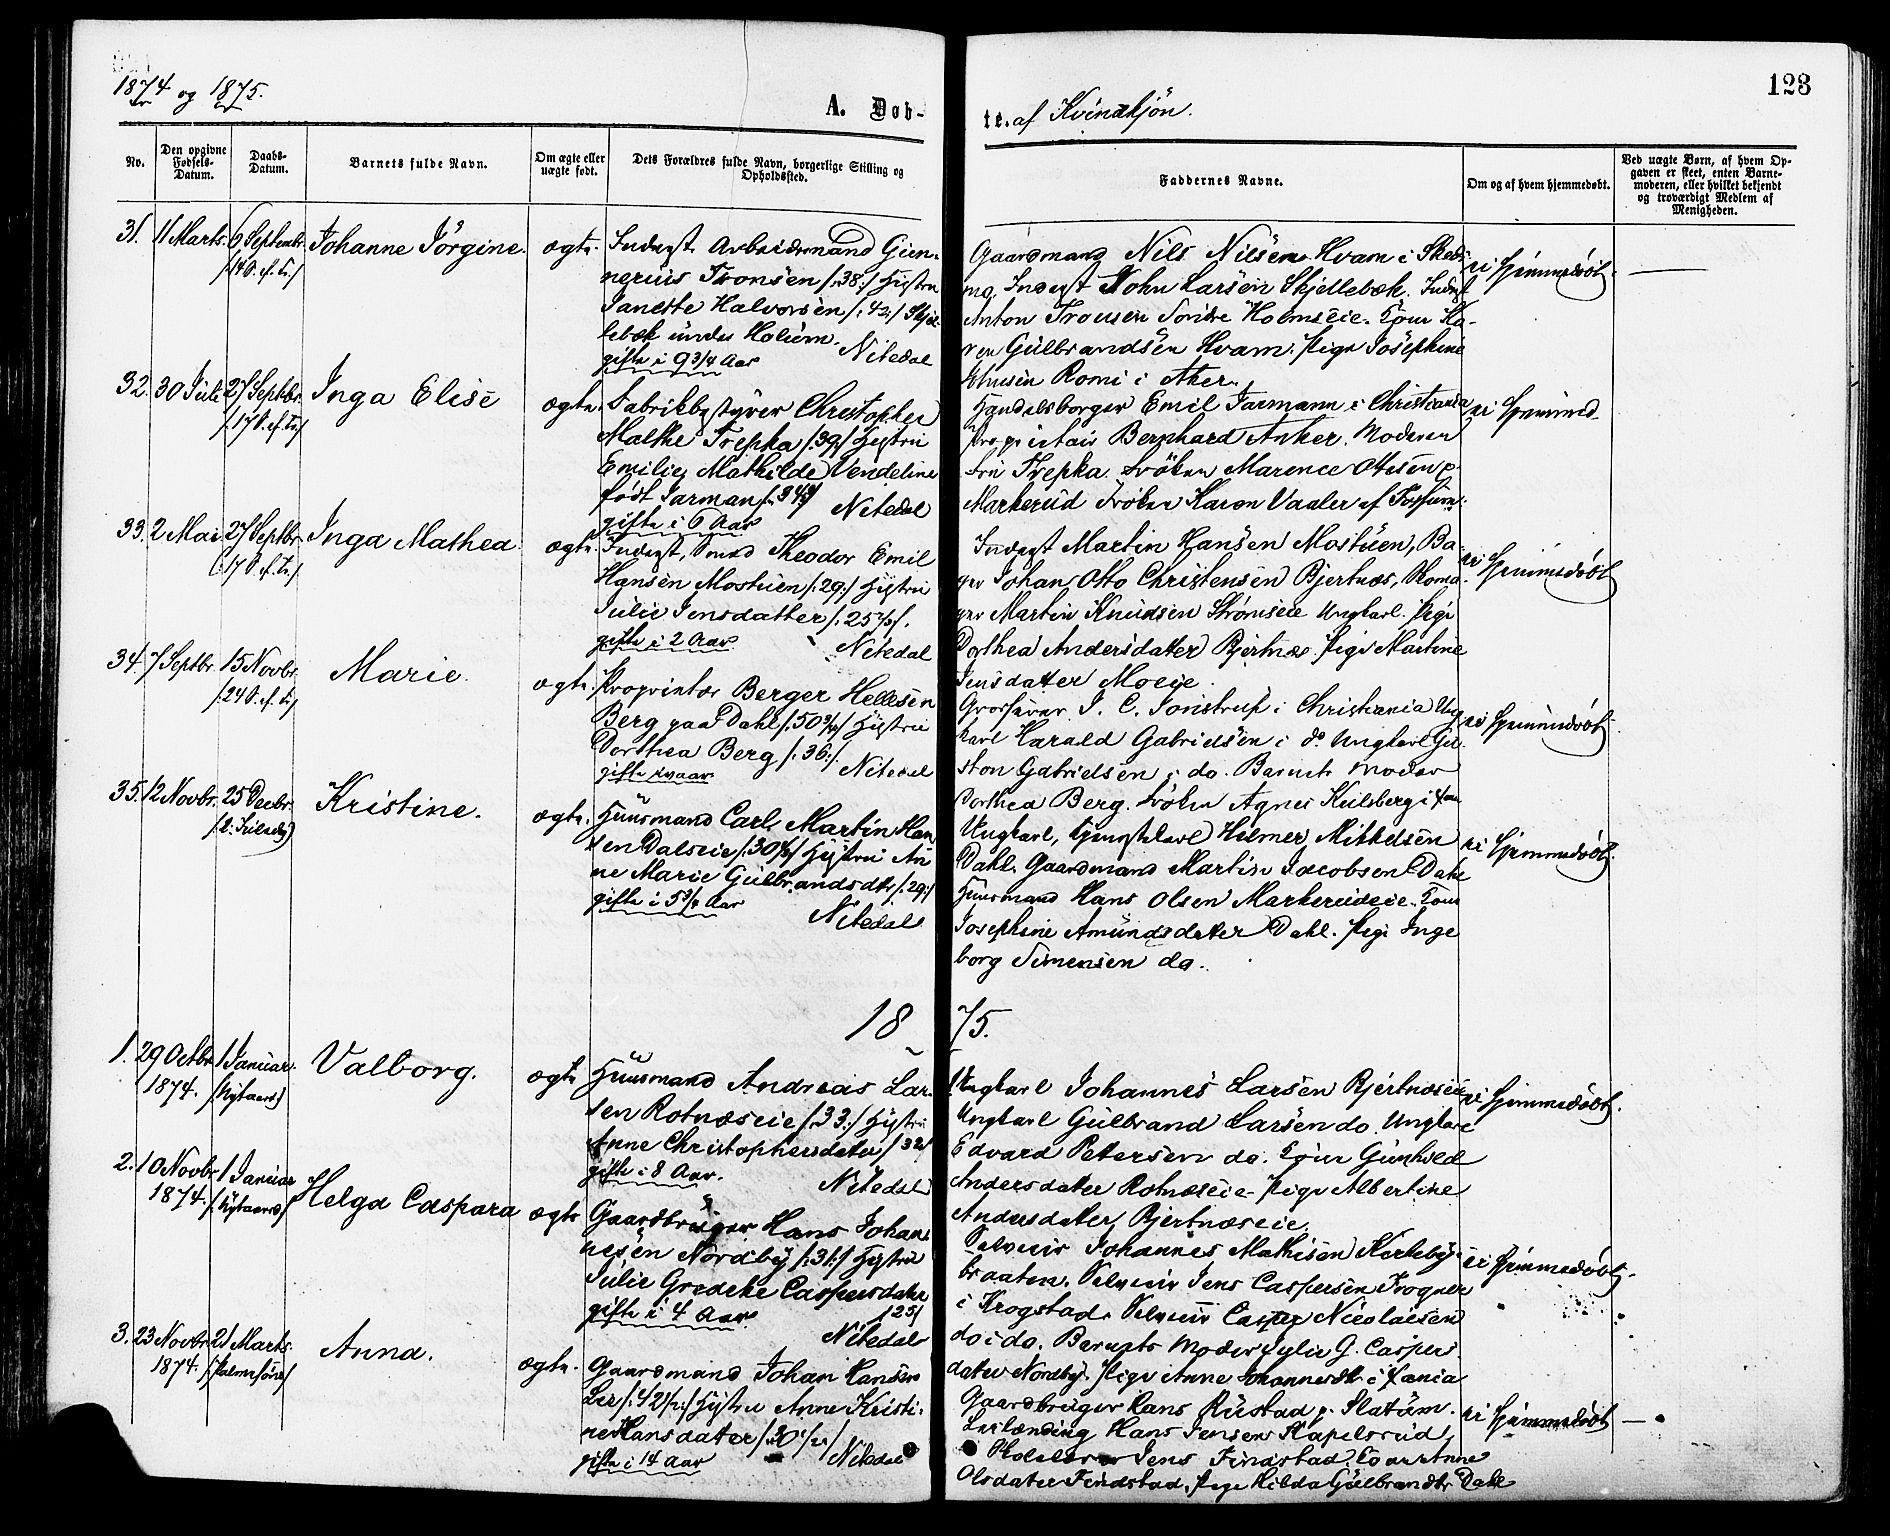 1874 og 1875.
A. Døb-
te. af Kvinekjön.
123
No.
Den opgivne Fødsels-Datum.
Daabs-Datum.
Barnets fulde Navn.
Om ægte eller uægte født.
Dets Forældres fulde Navn, borgerlige Stilling og Opholdssted.
Faddernes Navne.
Om og af hvem hjemmedøbt.
Ved uægte Børn, af hvem Op-
gaven er skeet, enten Barne-
moderen, eller hvilket bekjendt
og troværdigt Medlem af
Menigheden.
31. 11 Marts. 6 Septembr. Johanne Jörgine. ægte.
/14 S. ef. Tr/
Inderst Arbeidsmand Gun-
nerius Tronsen /:38:/ Hustru
Janette Halvorsen /:42:/ Skjel-
lebæk under Holum.
gifte i 9 3/4 Aar Nitedal
Gaardmand Nils Nilsen Hvam i Skeds-
mo, Inderst John Larsen Skjellebæk. Inderst
Anton Tronsen Søndre Holmseie. Kone Ka-
ren Gulbrandsen Hvam. Pige Josephine
Romi i Aker.
ei hjemmedöbt.
32. 30 Juli 27 Septbr. Inga Elise ægte.
/17 S. ef. Tr/
Fabrikbestyrer Christopher
Malthe Trepka /:39/ Hustru
Emilie Mathilde Vendeline
født Jarman /:34:/ Nitedal
gifte i 6 Aar
Handelsborger Emil Jarmann i Christiania
Proprietair Bernhard Anker. Moderen
Fru Trepka. Fröken Marence Ottesen p.
Markerud Fröken Karen Vaaler af
ei hjemmed.
33. 2 Mai 27 Septbr. Inga Mathea ægte.
/17 S. ef. Tr/
Inderst, Smed Theodor Emil
Hansen Mostuen /:29:/ Hustru
Julie Jensdatter /:25/.
gifte i 2 Aar Nitedal
Inderst Martin Hansen Mostuen, Ba-
ger Johan Otto Christensen Bjertnæs, Skoma-
ger Martin Knudsen Strömseie Ungkarl. Pige
Dorthea Andersdatter Bjertnæs Pige Martine
Jensdatter Moeie.
ei hjemmedöbt
34. 7 Septbr. 15 Novbr. Marie. ægte.
/24 S. ef. Tr/
Proprietær Berger Hellesen
Berg paa Dahl /:50 3/4/ Hustru
Dorthea Berg /:36:/.
gifte Nitedal
Grosserer J. C. Jonstrup i Christiania Ung-
karl Harald Gabrielsen i do. Ungkarl Gu-
ston Gabrielsen i do. Barnets Moder
Dorthea Berg. Fröken Agnes Keilberg i Xan
ei hjemmedöbt.
35. 12 Novbr. 25 Decbr. Kristine. ægte.
Huusmand Carl Martin Han
sen Dalseie /:30 1/2/ Hustru An
ne Marie Gulbrandsdtr /:29:/
gifte i 5 3/4 Aar Nitedal
Ungkarl, tjenstekarl Hilmer Mikkelsen
Dahl. Gaardmand Martin Jacobsen Dahl
Huusmand Hans Olsen Markerudeie. Kone
Josephine Amundsdatter Dahl. Pige Inge
borg Simensen do.
ei hjemmedöbt.
1875.
1. 29 Octbr. 1 Januar. Valborg. ægte
1874. /Nytaarsd/
Huusmand Andreas Lar-
sen Rotnæseie /:33:/ Hustru
Anne Christophersdatter / 32/
gifte i 8 Aar. Nitedal
Ungkarl Johannes Larsen Bjertnæseie
Ungkarl Gulbrand Larsen do. Ungkarl
Edvard Petersen do. Kone Gunhild
Andersdatter Rotnæseie. Pige Albertine
Andersdatter Bjertnæseie.
ei hjemmedöbt.
2. 10 Novbr 1 Januar Helga Caspara ægte
1874. /Nytaarsd/
Gaardbruger Hans Johan-
nesen Nordby /:31:/ Hustru
Julie Gredeke Caspersdatter
gifte i 4 Aar /25/
Nitedal
Selveier Johannes Mathisen Kirkeby-
braaten. Selveier Jens Caspersen Trogner
i Krogstad. Selveier Casper Nicolaisen
do i do. Barnets Moder Julie G. Caspers-
datter Nordby. Pige Anne Johannesdtr i Xania
ei hjemmedöbt.
3. 23 Novbr 21 Marts. Anna. ægte.
1874. /Palmesönd/
Gaardmand Johan Hansen
Lie /:42 1/2:/ Hustru Anne Kristi-
ne Hansdatter /:30 1/2/
gifte i 14 Aar Nitedal
Gaardbruger Hans Rustad p. Slatum.
Hans Jensen Kapelsrud,
Jens Findstad, Kone Anne
Olsdatter Findstad, Pige Hilda Gulbrandsdtr Dahl
ei hjemmedöbt